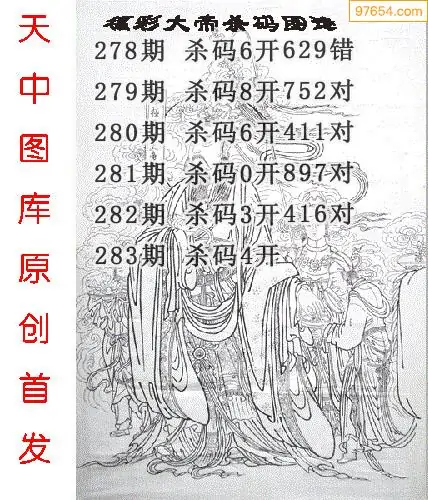 97654.com
福彩大帝杀码图谜
278期 杀码6开629错
279期 杀码8开752对
280期 杀码6开411对
281期 杀码0开897对
282期 杀码3开416对
283期 杀码4开
天中图库原创首发